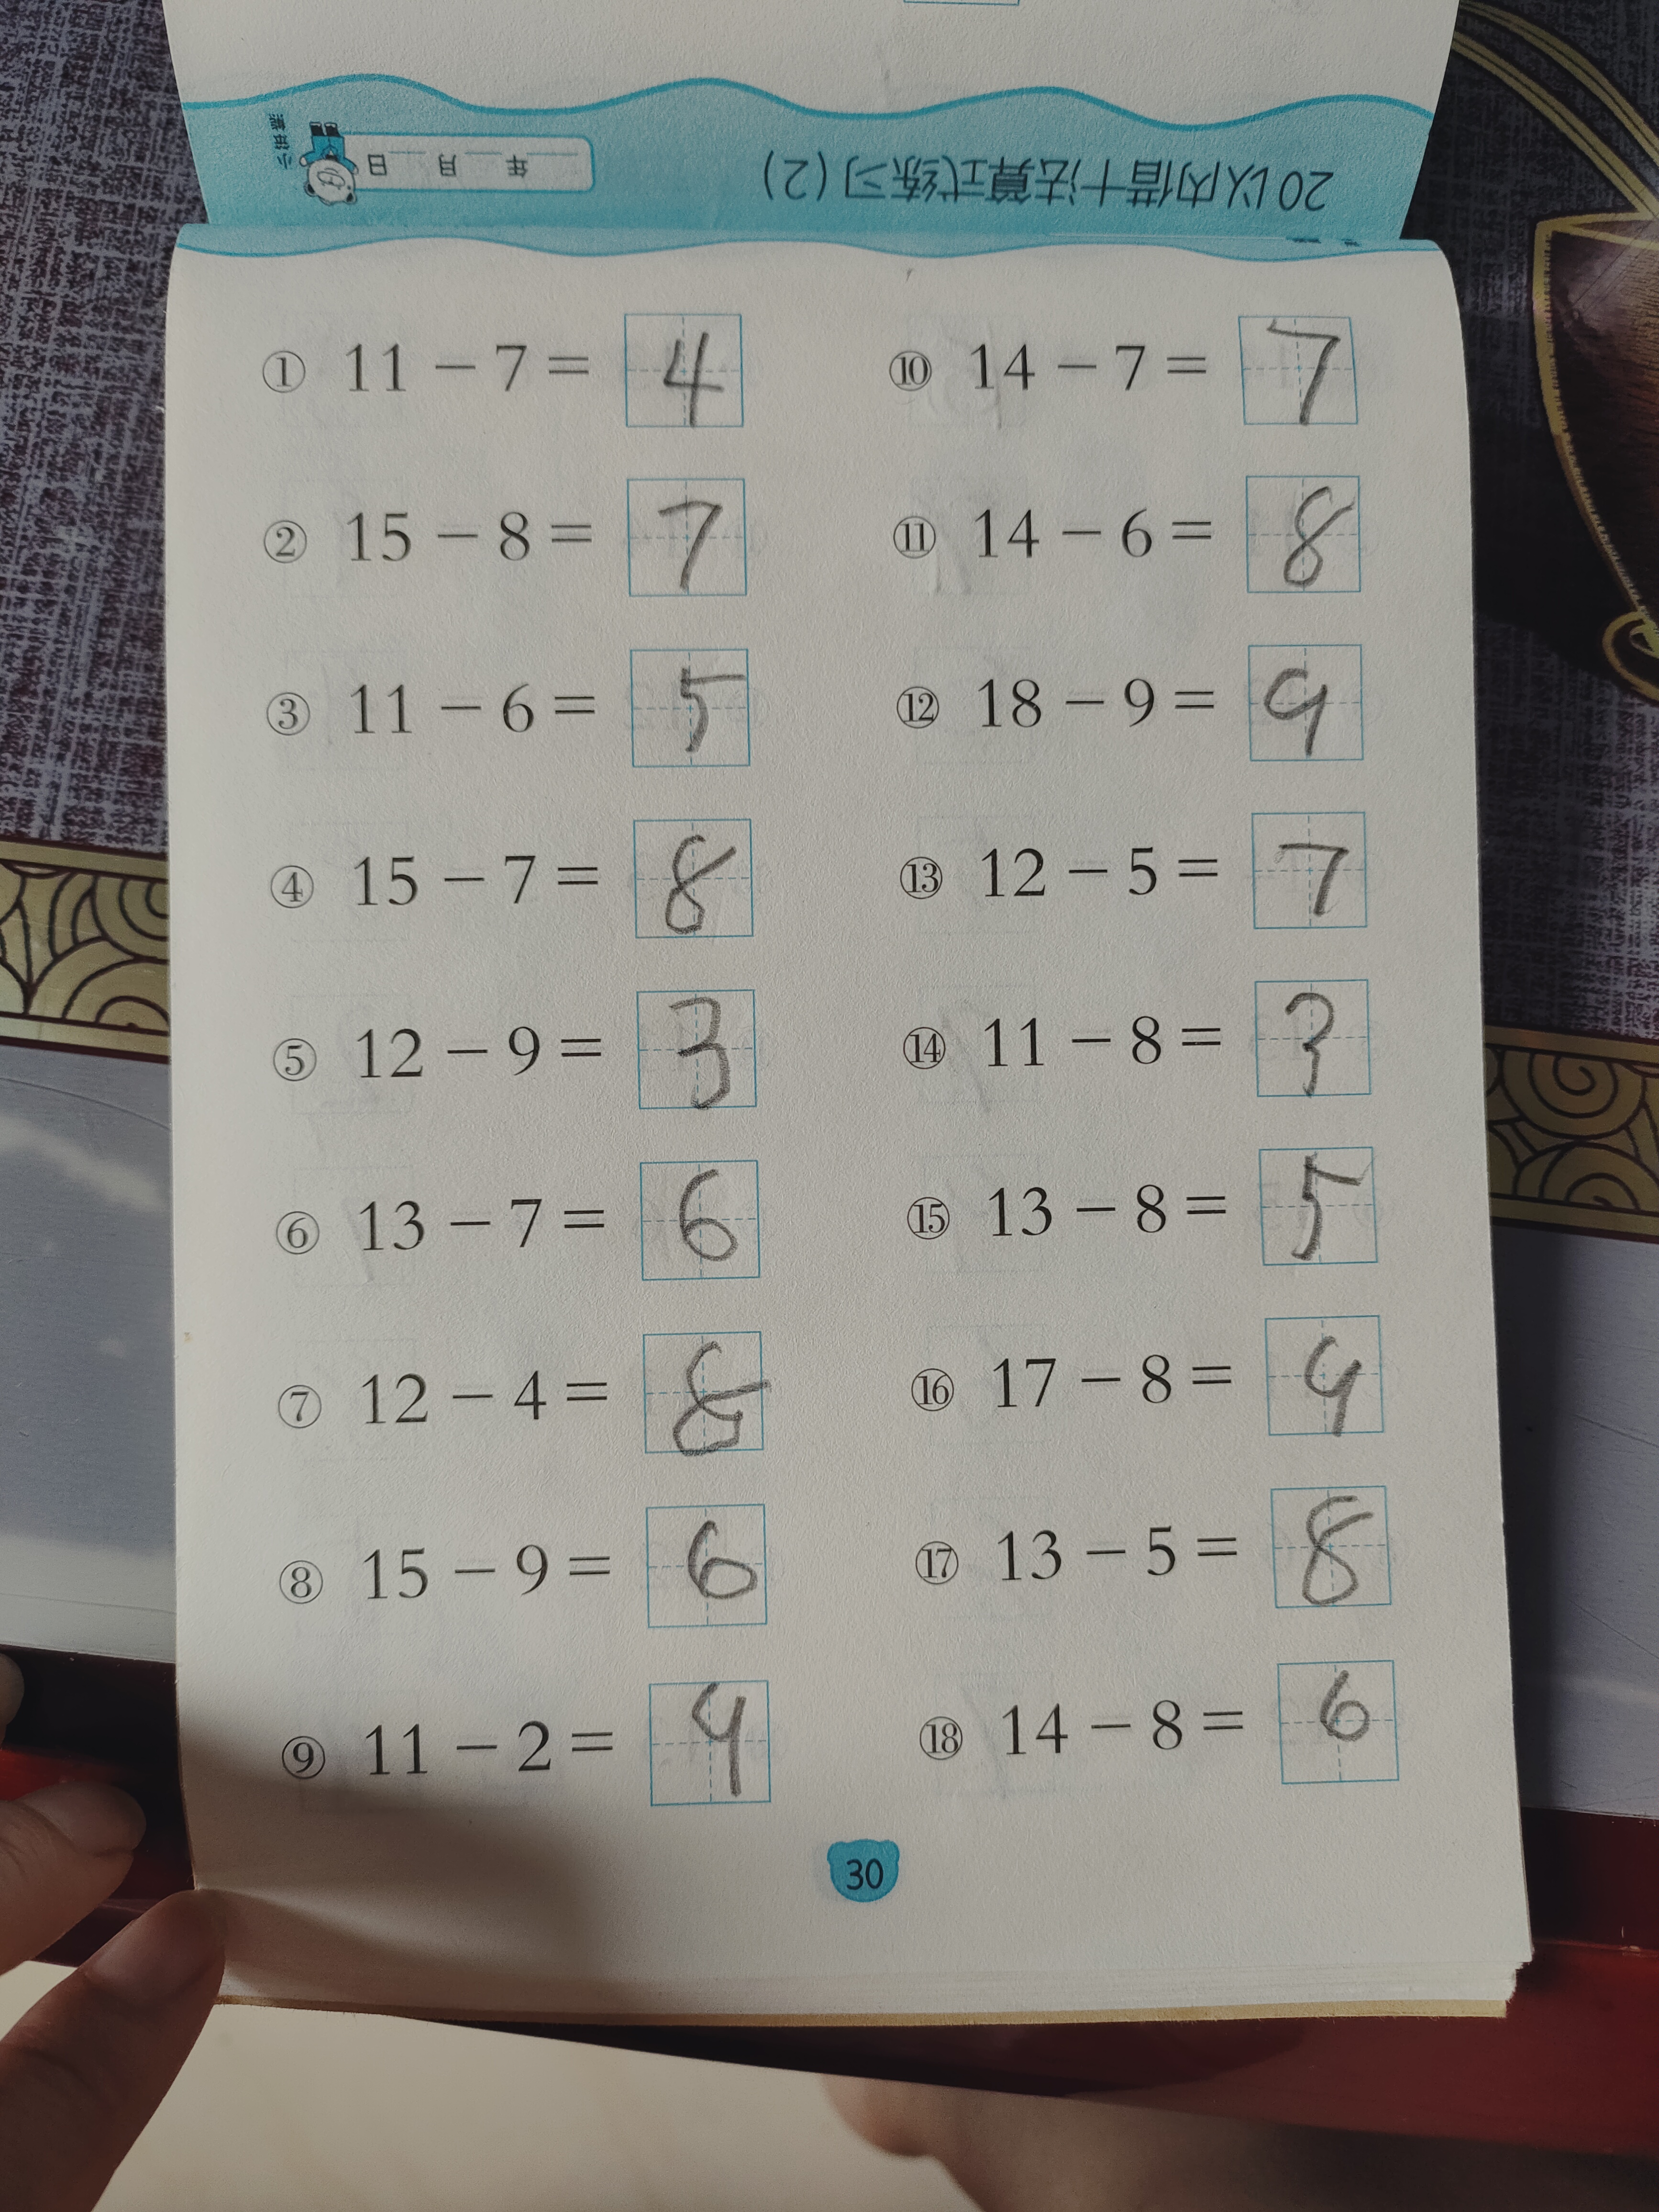 20以内借十法算式练习(2)
年 月 日
① 11-7=4
② 15-8=7
③ 11-6=5
④ 15-7=8
⑤ 12-9=3
⑥ 13-7=6
⑦ 12-4=8
⑧ 15-9=6
⑨ 11-2=9
⑩ 14-7=7
⑪ 14-6=8
⑫ 18-9=9
⑬ 12-5=7
⑭ 11-8=3
⑮ 13-8=5
⑯ 17-8=9
⑰ 13-5=8
⑱ 14-8=6
30